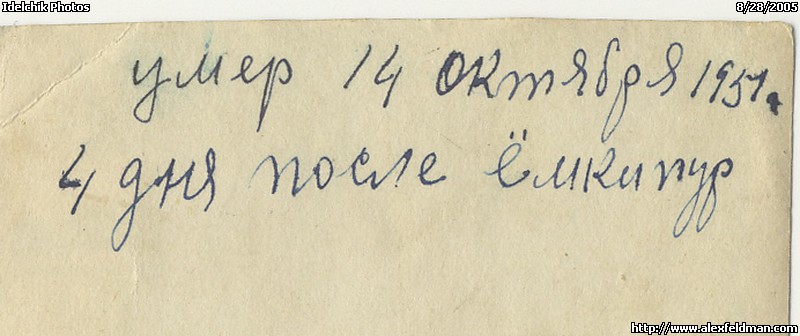 Idelchik Photos
8/28/2005
умер 14 октября 1951г.
4 дня после Ёмкипур
http://www.alexfeldman.com/